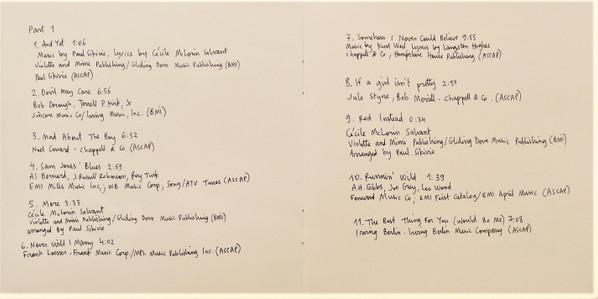 Part 1
1. And Yet 1:06
Music by Paul Sikivie, Lyrics by Cécile McLorin Salvant
Violette and Mimi Publishing/Gliding Dove Music Publishing (BMI)
Paul Sikivie (ASCAP)
2. Devil May Care 6:56
Bob Dorough, Terrell P. Kirk, Jr
Sincere Music Co/Irving Music, Inc. (BMI)
3. Mad About The Boy 6:52
Noel Coward - Chappell & Co. (ASCAP)
4. Sam Jones' Blues 2:59
Al Bernard, J. Russell Robinson, Roy Turk
EMI Mills Music Inc, WB Music Corp, Sony/ATV Tunes (ASCAP)
5. More 3:33
Cécile McLorin Salvant
Violette and Mimi Publishing/Gliding Dove Music Publishing (BMI)
arranged By Paul Sikivie
6. Never Will I Marry 4:02
Frank Loesser - Frank Music Corp./MPL Music Publishing Inc. (ASCAP)
7. Somehow I Never Could Believe 9:55
Music by Kurt Weill Lyrics by Langston Hughes
Chappell & Co, Hampshire House Publishing (ASCAP)
8. If a girl isn't pretty 2:55
Jule Styne, Bob Merrill - Chappell & Co. (ASCAP)
9. Red Instead 0:34
Cécile McLorin Salvant
Violette and Mimi Publishing/Gliding Dove Music Publishing (BMI)
Arranged by Paul Sikivie
10. Runnin' Wild 1:39
A.H. Gibbs, Joe Grey, Leo Wood
Music Co, EMI Feist Catalog/EMI April Music (ASCAP)
11. The Best Thing For You (Would Be Me) 7:08
Irving Berlin - Irving Berlin Music Company (ASCAP)